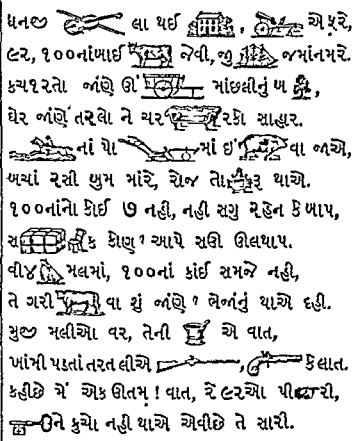 ધનજી લા થઈ , એ ફરે,
૯ર, ૧૦૦નાંખાઈ જેવી, જી જમાંનમરે.
કચ૧રતો જાંણે ઊં માંછલીનું ખ ,
ઘેર જાંણે તરલો ને ચર રકો સાહાર.
નાં પો માં ઇ વા જાએ,
બચાં ૨સી બુમ માંરે, રોજ તો રૂ થાએ.
૧૦૦નાંનો કોઈ ૭ નહી, નહી સગુ રહેન કે બાપ,
સ ક કોણ? આપે સઊ ઊલથાપ.
વી૪ મલમાં, ૧૦૦નાં કાંઈ સમજે નહી,
તે ગરી વા શું જાંણે? ભેજાંનું થાએ દહી.
મુજી મલીઓ વર, તેની એ વાત,
ખાંમી પડતાં તરત લીએ , કે લાત.
કહીછે મેં એક ઊતમ! વાત, રે ૯રઓ પી રી,
ને કુચો નહી થાએ એવીછે તે સારી.